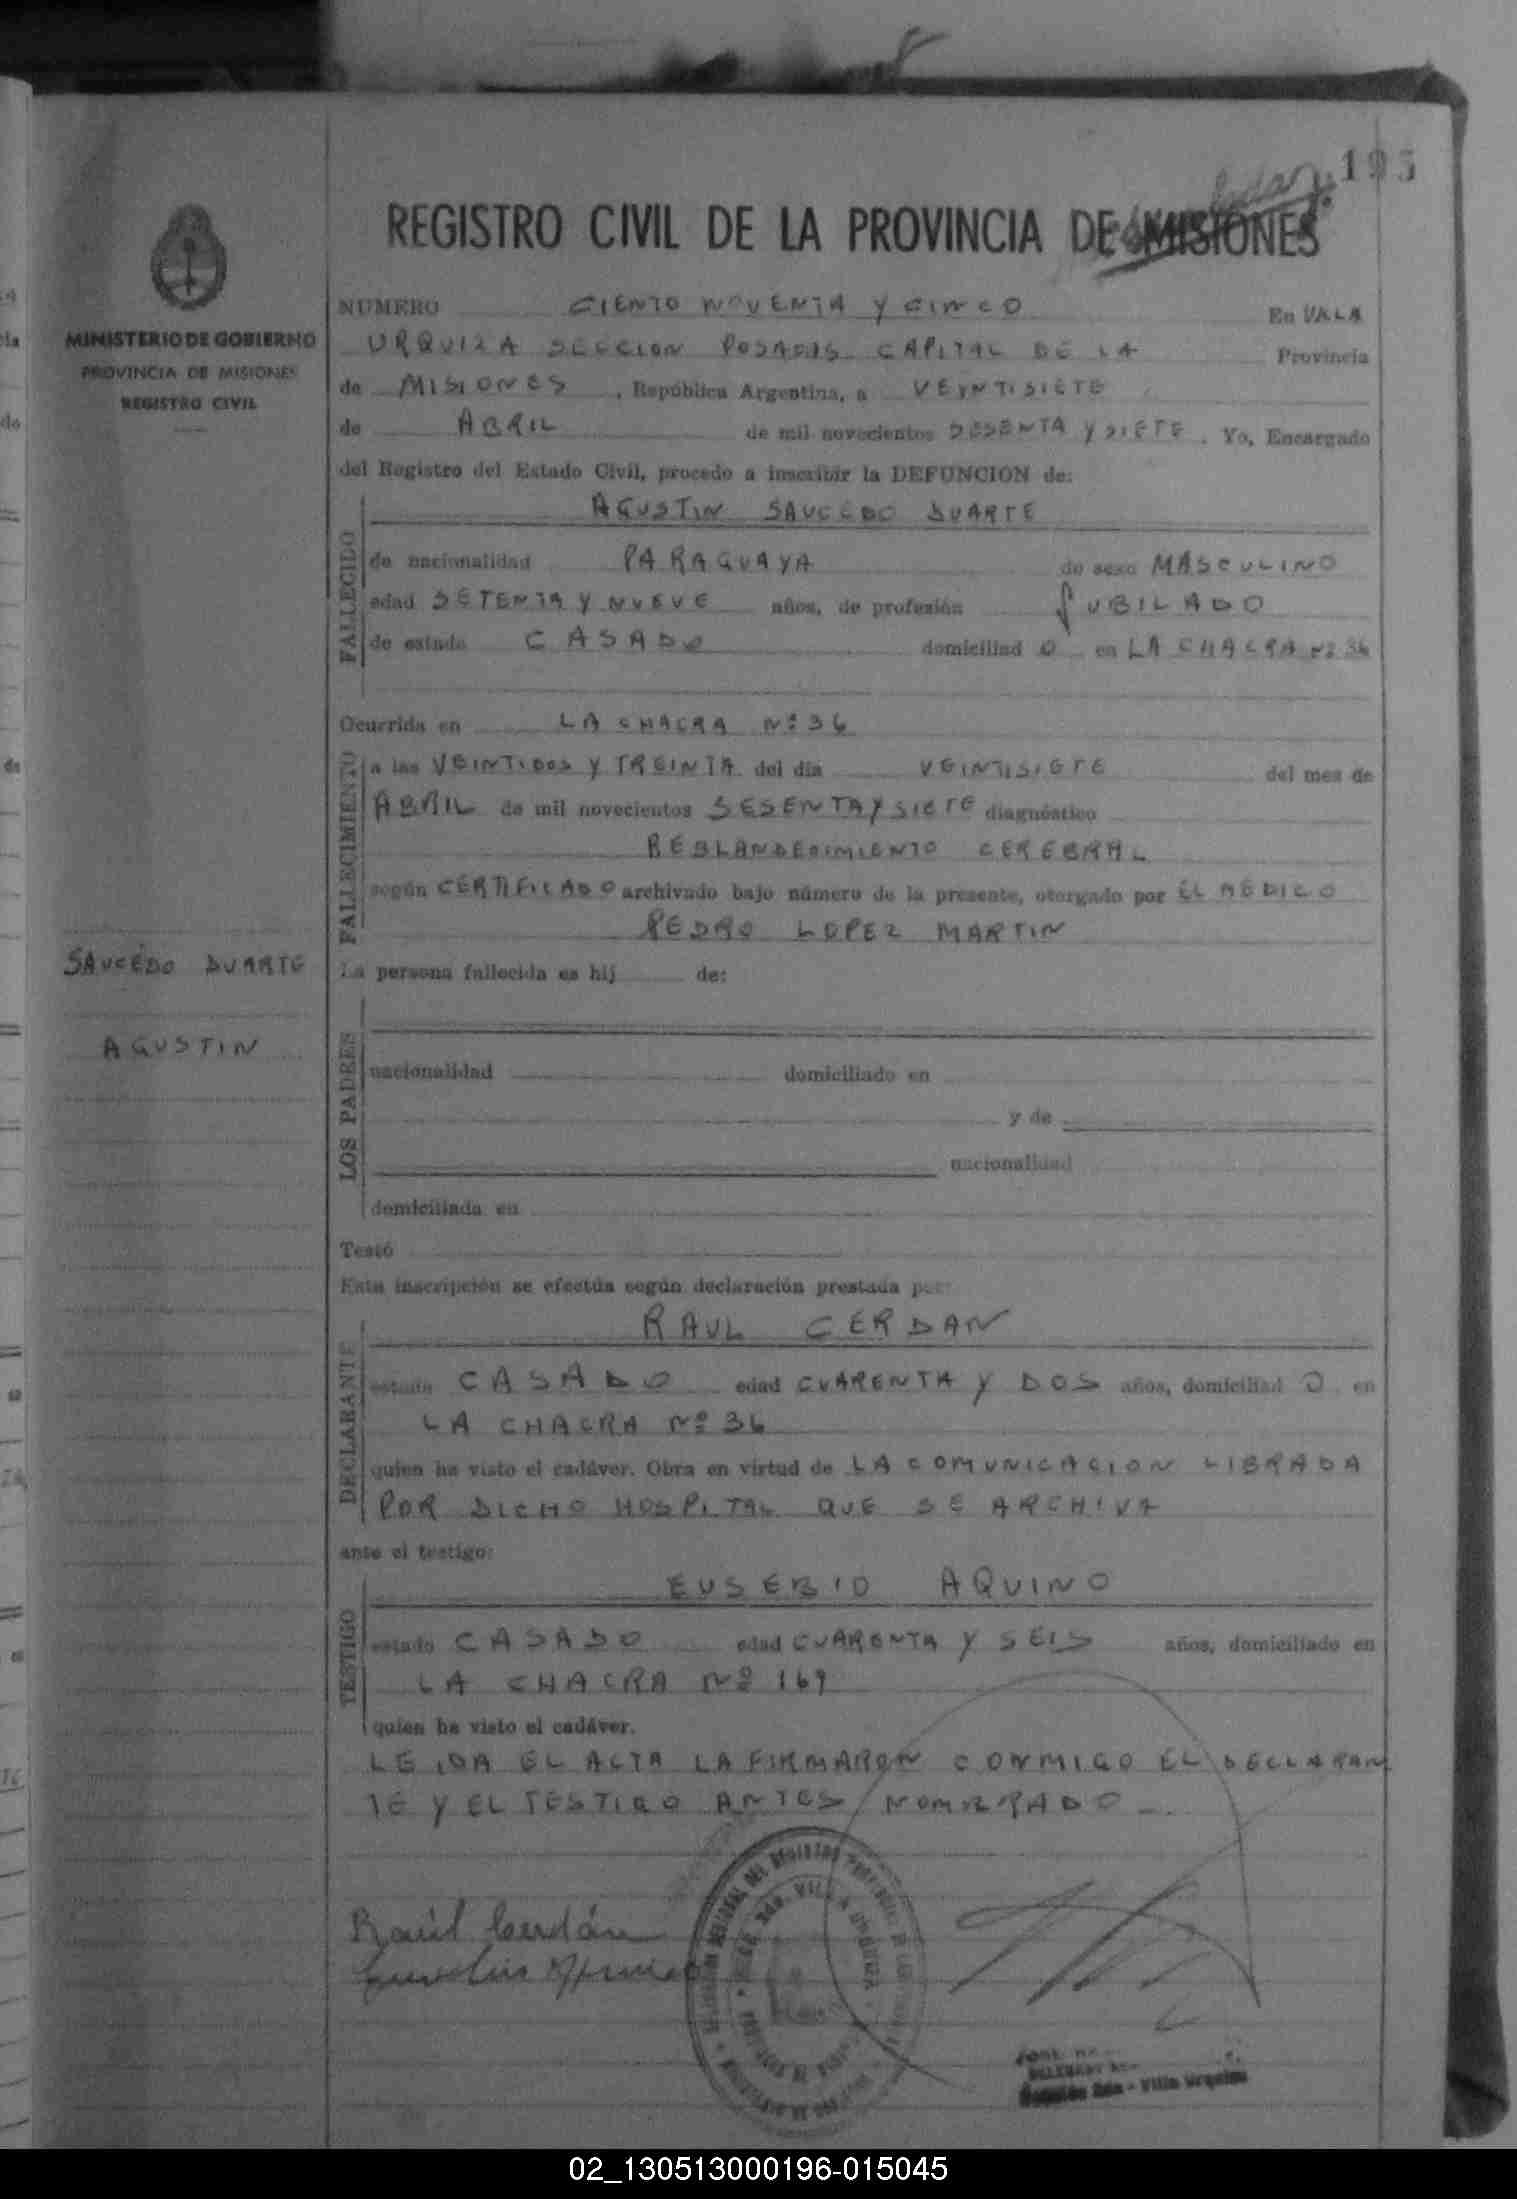 195
REGISTRO CIVIL DE LA PROVINCIA DE MISIONES
MINISTERIO DE GOBIERNO
PROVINCIA DE MISIONES
REGISTRO CIVIL
NUMERO CIENTO NOVENTA Y CINCO En VALA
URQUIZA SECCION POSADAS CAPITAL DE LA Provincia
de MISIONES, República Argentina, a VEINTISIETE
de ABRIL de mil novecientos SESENTA Y SIETE. Yo, Encargado
del Registro del Estado Civil, procedo a inscribir la DEFUNCION de:
AGUSTIN SAUCEDO DUARTE
FALLECIDO
de nacionalidad PARAGUAYA de sexo MASCULINO
edad SETENTA Y NUEVE años, de profesión JUBILADO
de estado CASADO domiciliad O en LA CHACRA Nº 36
Ocurrida en LA CHACRA Nº 36
FALLECIMIENTO
a las VEINTIDOS Y TREINTA del día VEINTISIETE del mes de
ABRIL de mil novecientos SESENTA Y SIETE diagnóstico
REBLANDECIMIENTO CEREBRAL
según CERTIFICADO archivado bajo número de la presente, otorgado por EL MEDICO
PEDRO LOPEZ MARTIN
SAUCEDO DUARTE
AGUSTIN
La persona fallecida es hij de:
LOS PADRES
nacionalidad domiciliado en
y de
nacionalidad
domiciliada en
Testó
Esta inscripción se efectúa según declaración prestada por:
RAUL CERDAN
DECLARANTE
estado CASADO edad CUARENTA Y DOS años, domiciliad O en
LA CHACRA Nº 36
quien ha visto el cadáver. Obra en virtud de LA COMUNICACION LIBRADA
POR DICHO HOSPITAL QUE SE ARCHIVA
ante el testigo:
EUSEBIO AQUINO
TESTIGO
estado CASADO edad CUARENTA Y SEIS años, domiciliado en
LA CHACRA Nº 169
quien ha visto el cadáver.
LEIDA EL ACTA LA FIRMARON CONMIGO EL DECLARAN
TE Y EL TESTIGO ANTES NOMBRADO
Raúl Cerdán
Sección 2da - Villa Urquiza
02_130513000196-015045